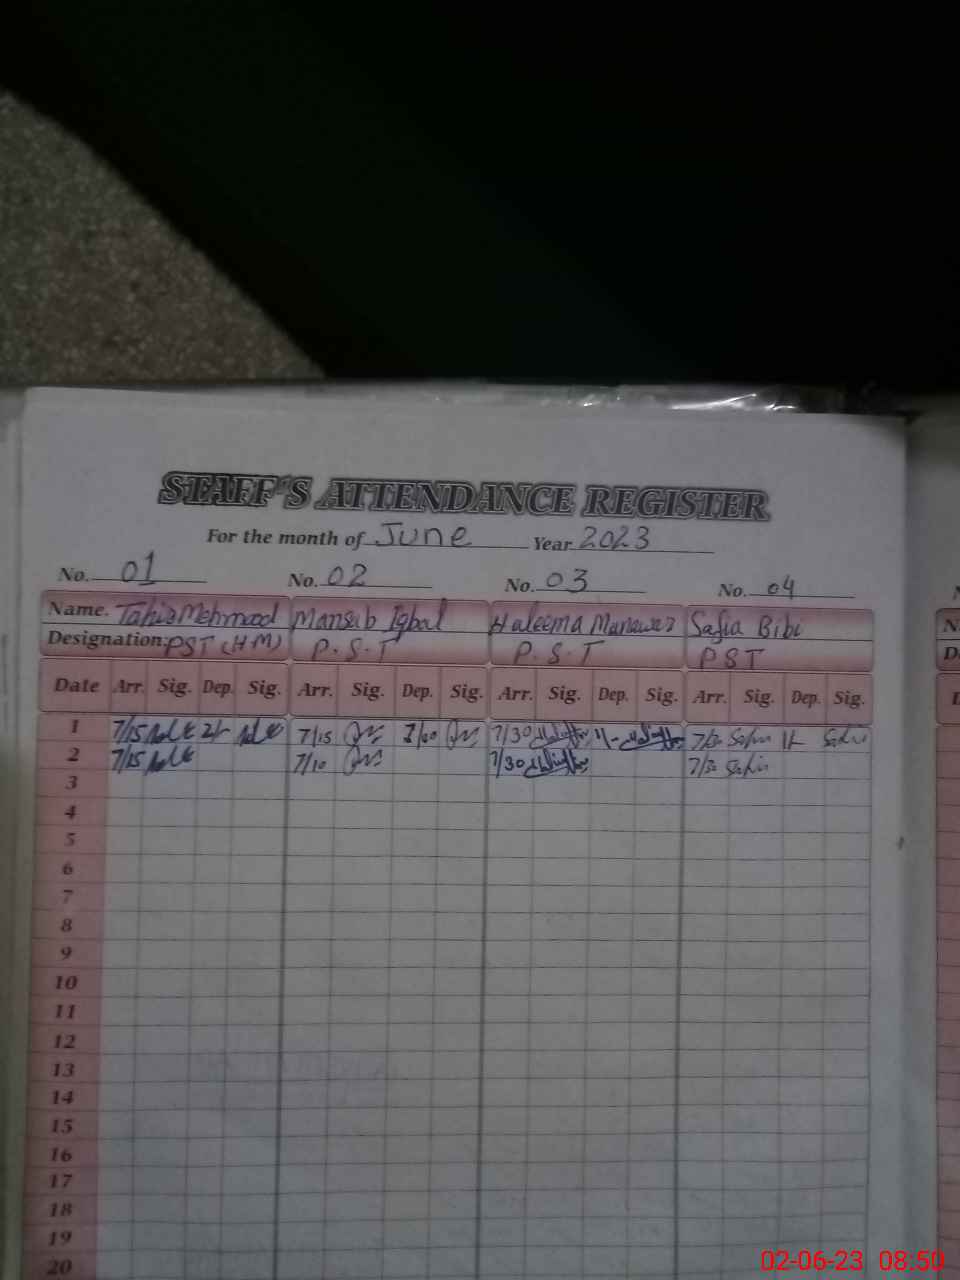 STAFF'S ATTENDANCE REGISTER
For the month of June Year 2023
No. 01 No. 02 No. 03 No. 04
Name. Tahir Mehmood Mansab Iqbal Haleema Manawer Safia Bibi
Designation: PST (HM) P.S.T P.S.T PST
Date Arr. Sig. Dep. Sig. Arr. Sig. Dep. Sig. Arr. Sig. Dep. Sig. Arr. Sig. Dep. Sig.
1 7/15 7/15 7/30 7/30 Safia Safia
2 7/15 7/10 7/30 7/30 Safia
3
4
5
6
7
8
9
10
11
12
13
14
15
16
17
18
19
20
02-06-23 08:50